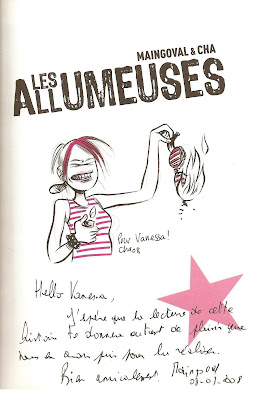 MAINGOVAL & CHA
LES
ALLUMEUSES
Pour Vanessa!
Cha08
Hello Vanessa,
J'espère que la lecture de cette
histoire te donnera autant de plaisir que
nous en avons pris pour la réaliser.
Bien amicalement. Maingoval
03-07-2008